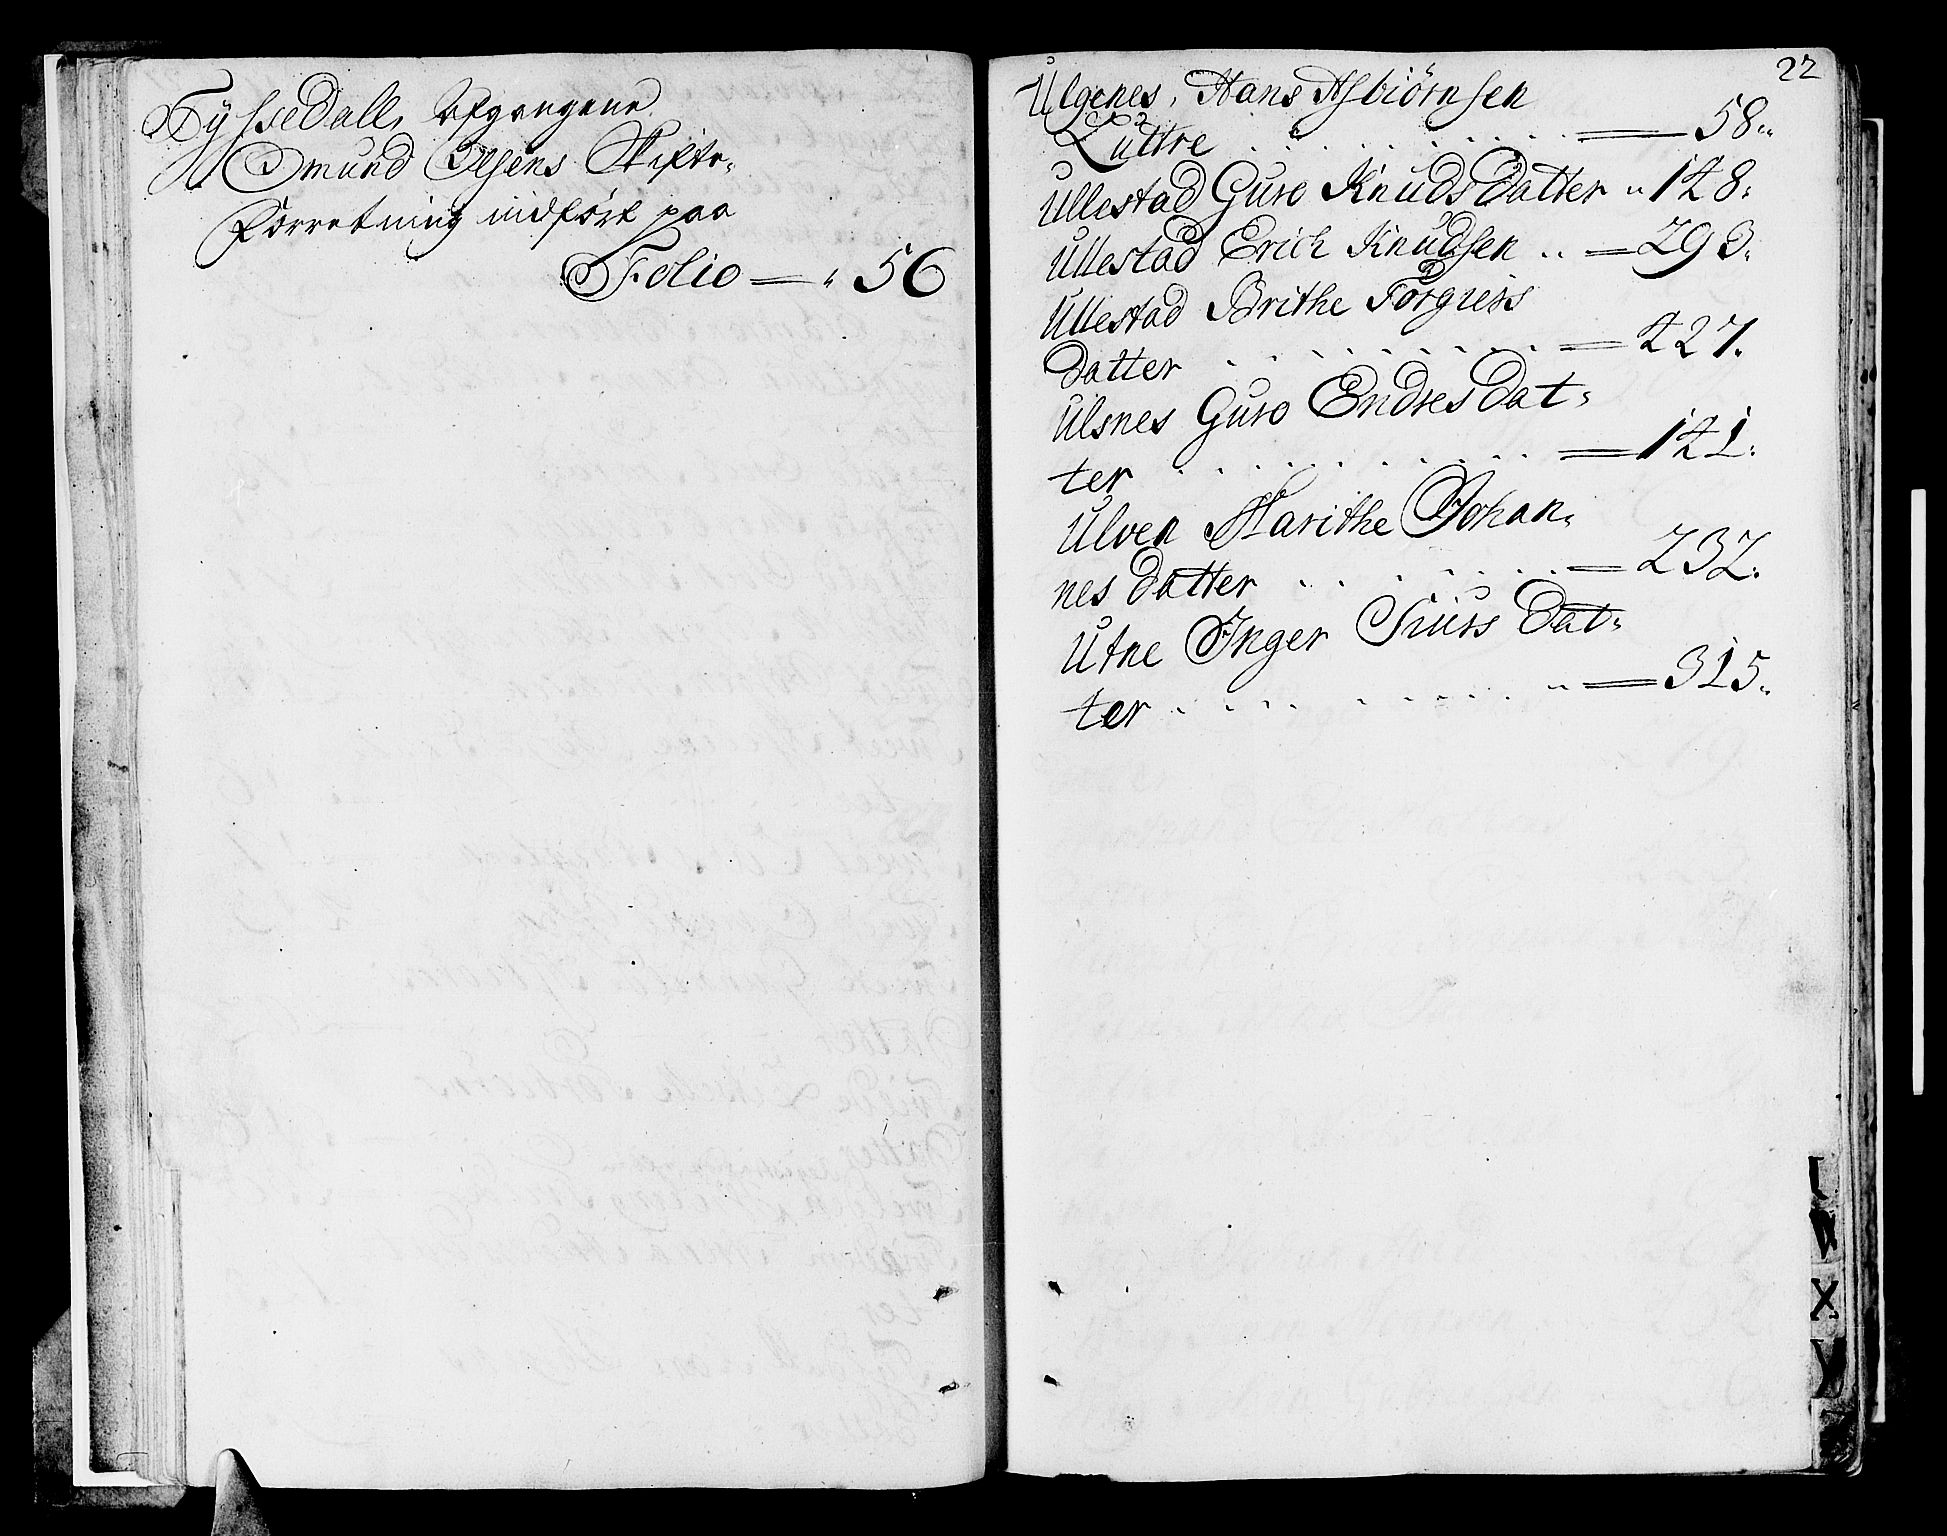 Tÿssedall, Afgangene
Omund Olsens Skifte-
Forretning indført paa
Folio = " 56
22
Ulgenes, Hans Asbiörnsen
Luttre . . . . . . . . = 58.
Ullestad Guro Knudsdatter " 148.
Ullestad Erich Knudsen .. = 293.
Ullestad Brithe Torgiers
datter . . . . . . . . = 427.
Ulsnes Guro Endresdat-
ter . . . . . . . . . = 141.
Ulven Marithe Johan-
nes datter . . . . . . = 232.
Utne Inger Siurs Dat-
ter . . . . . . . . = 315.
W
X
Y